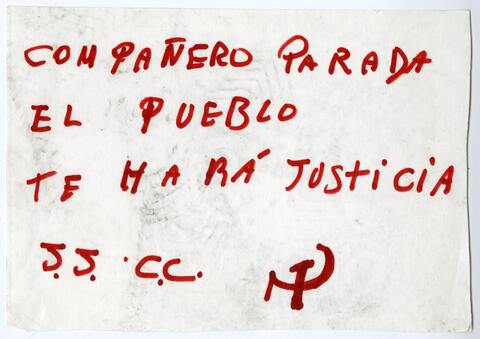 COMPAÑERO PARADA
EL PUEBLO
TE HARÁ JUSTICIA
J.J. C.C.